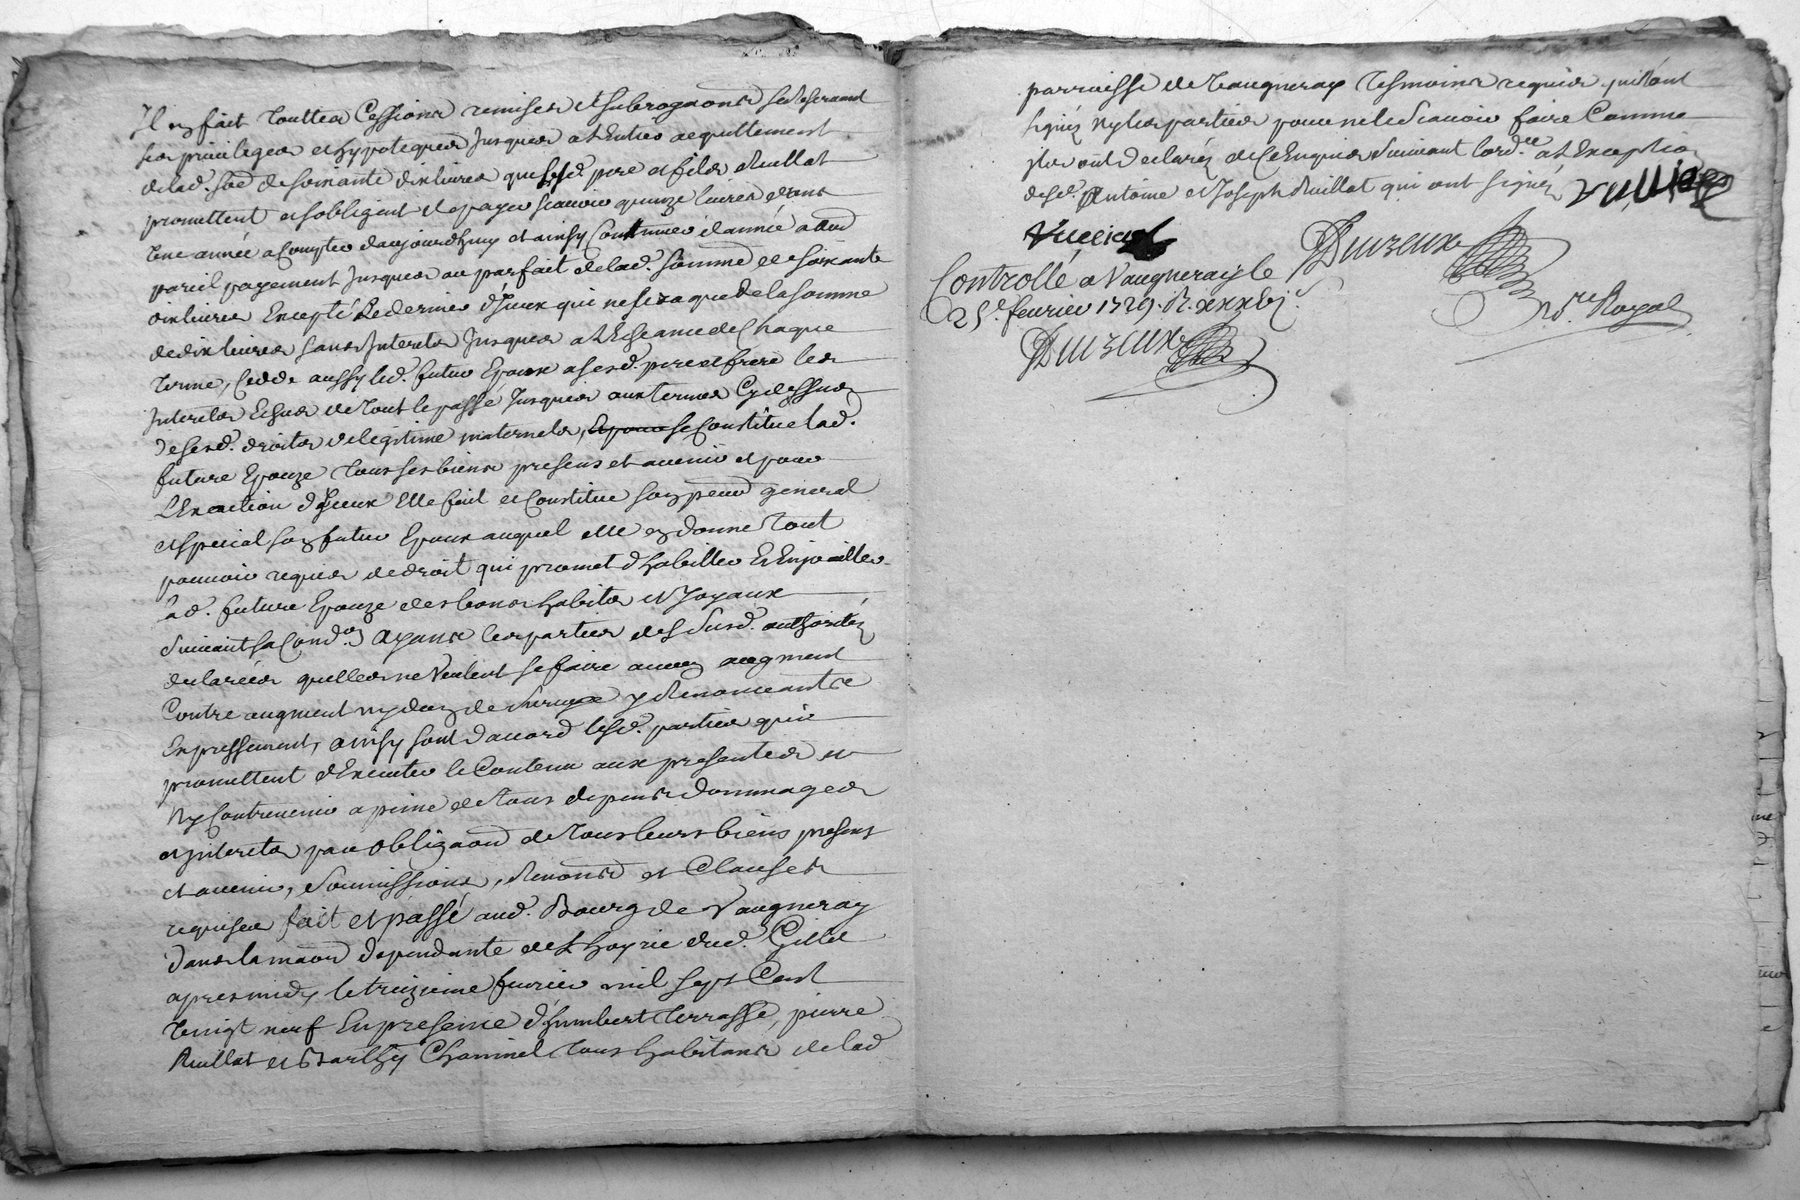 Il en fait touttes Cessions remises et subrogaons se Reservant
ses privileges et hypoteques Jusques a L'Entier acquittement
de lad. soe de soixante dix livres que lesd. pere et fils Ruillat
promettent et s'obligent de payer scavoir quinze livres dans
une année a Compter daujourdhuy et ainsy Continuer d'année a
pareil payement Jusques au parfait de lad. somme de soixante
dix livres Excepté Le dernier d'Iceux qui ne sera que de la somme
de dix livres sans Interets Jusques a L'Escheance de Chaque
terme, Cedde aussy led. futur Epoux a sesd. pere et frere les
Interets Echus de tout le passé Jusques aux termes Cy dessus
de sesd. droits de legitime maternels, se Constitue lad.
future Epouze tous ses biens presens et avenir et pour
L'Exaction d'Iceux Elle fait et Constitue son general
et special son futur Epoux auquel elle en donne tout
pouvoir requis de droit qui promet d'habiller et Enjoailler
lad. future Epouze des bons habits et Joyaux
suivant sa Condon Ayants les parties de Susd. authorités
declarées quelles ne veulent se faire aucun augment
Contre augment ny don de survie y Renonceants
Expressement, ainsy sont d'accord lesd. parties qui
promettent d'Executer le Contenu aux presentes et
ny Contrevenir a peine de tous depens dommages
et interets par obligaon de tous leurs biens presens
et avenir, soumissions, Renons et Clauses
requises fait et passé aud. Bourg de Vaugneray
dans la maon dependante de L'hoyrie dud. Gillet
apres midy le treizieme fevrier mil sept Cent
vingt neuf En presence d'humbert terrasse, pierre
Ruillat et Barthy Chaninel tous habitans de lad
parroisse de Vaugneray tesmoins requis qui n'ont
signé ny les parties pour ne le Scavoir faire Comme
ils ont declaré de ce Enquis Suivant lord.ce a L'Exception
desd. Antoine et Joseph Ruillat qui ont signé
Controllé a Vaugneray le
25e. fevrier 1729. R.
Nre. Royal